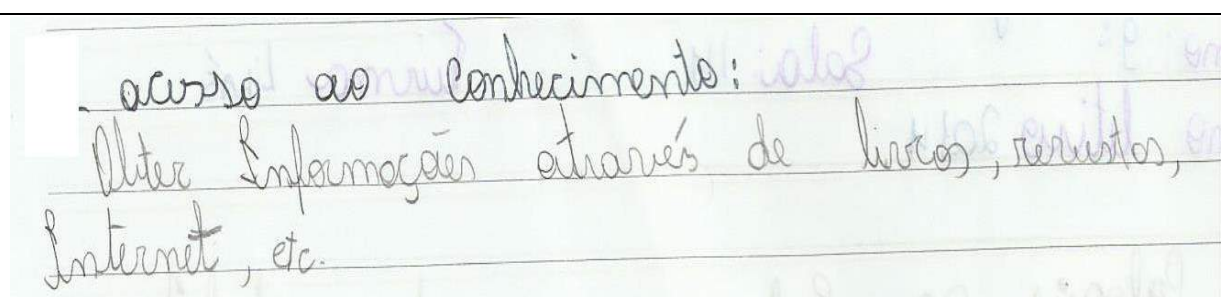 - acesso ao Conhecimento:
Obter Informações através de livros, revistas,
Internet, etc.